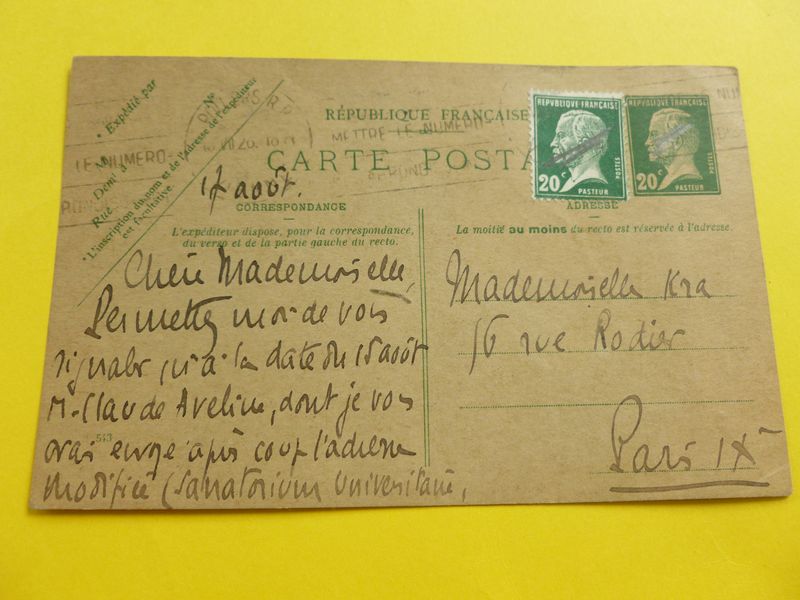 * Expédié par
M
Demt à
Rue
No
* L'inscription du nom et de l'adresse de l'expéditeur
est facultative
LE NUMERO
METTRE LE NUMERO
RÉPUBLIQUE FRANÇAISE
CARTE POSTA
REPUBLIQUE FRANÇAISE
POSTES
20 c
PASTEUR
POSTES
20 c
PASTEUR
17 août.
CORRESPONDANCE
L'expéditeur dispose, pour la correspondance,
du verso et de la partie gauche du recto.
Chère Mademoiselle,
Permettez moi de vous
signaler qu'à la date du 15 août
M. Claude Aveline, dont je vous
avais envoyé après coup l'adresse
modifiée (Sanatorium Universitaire,
543
ADRESSE
La moitié au moins du recto est réservée à l'adresse.
Mademoiselle Kra
16 rue Rodier
Paris IXe